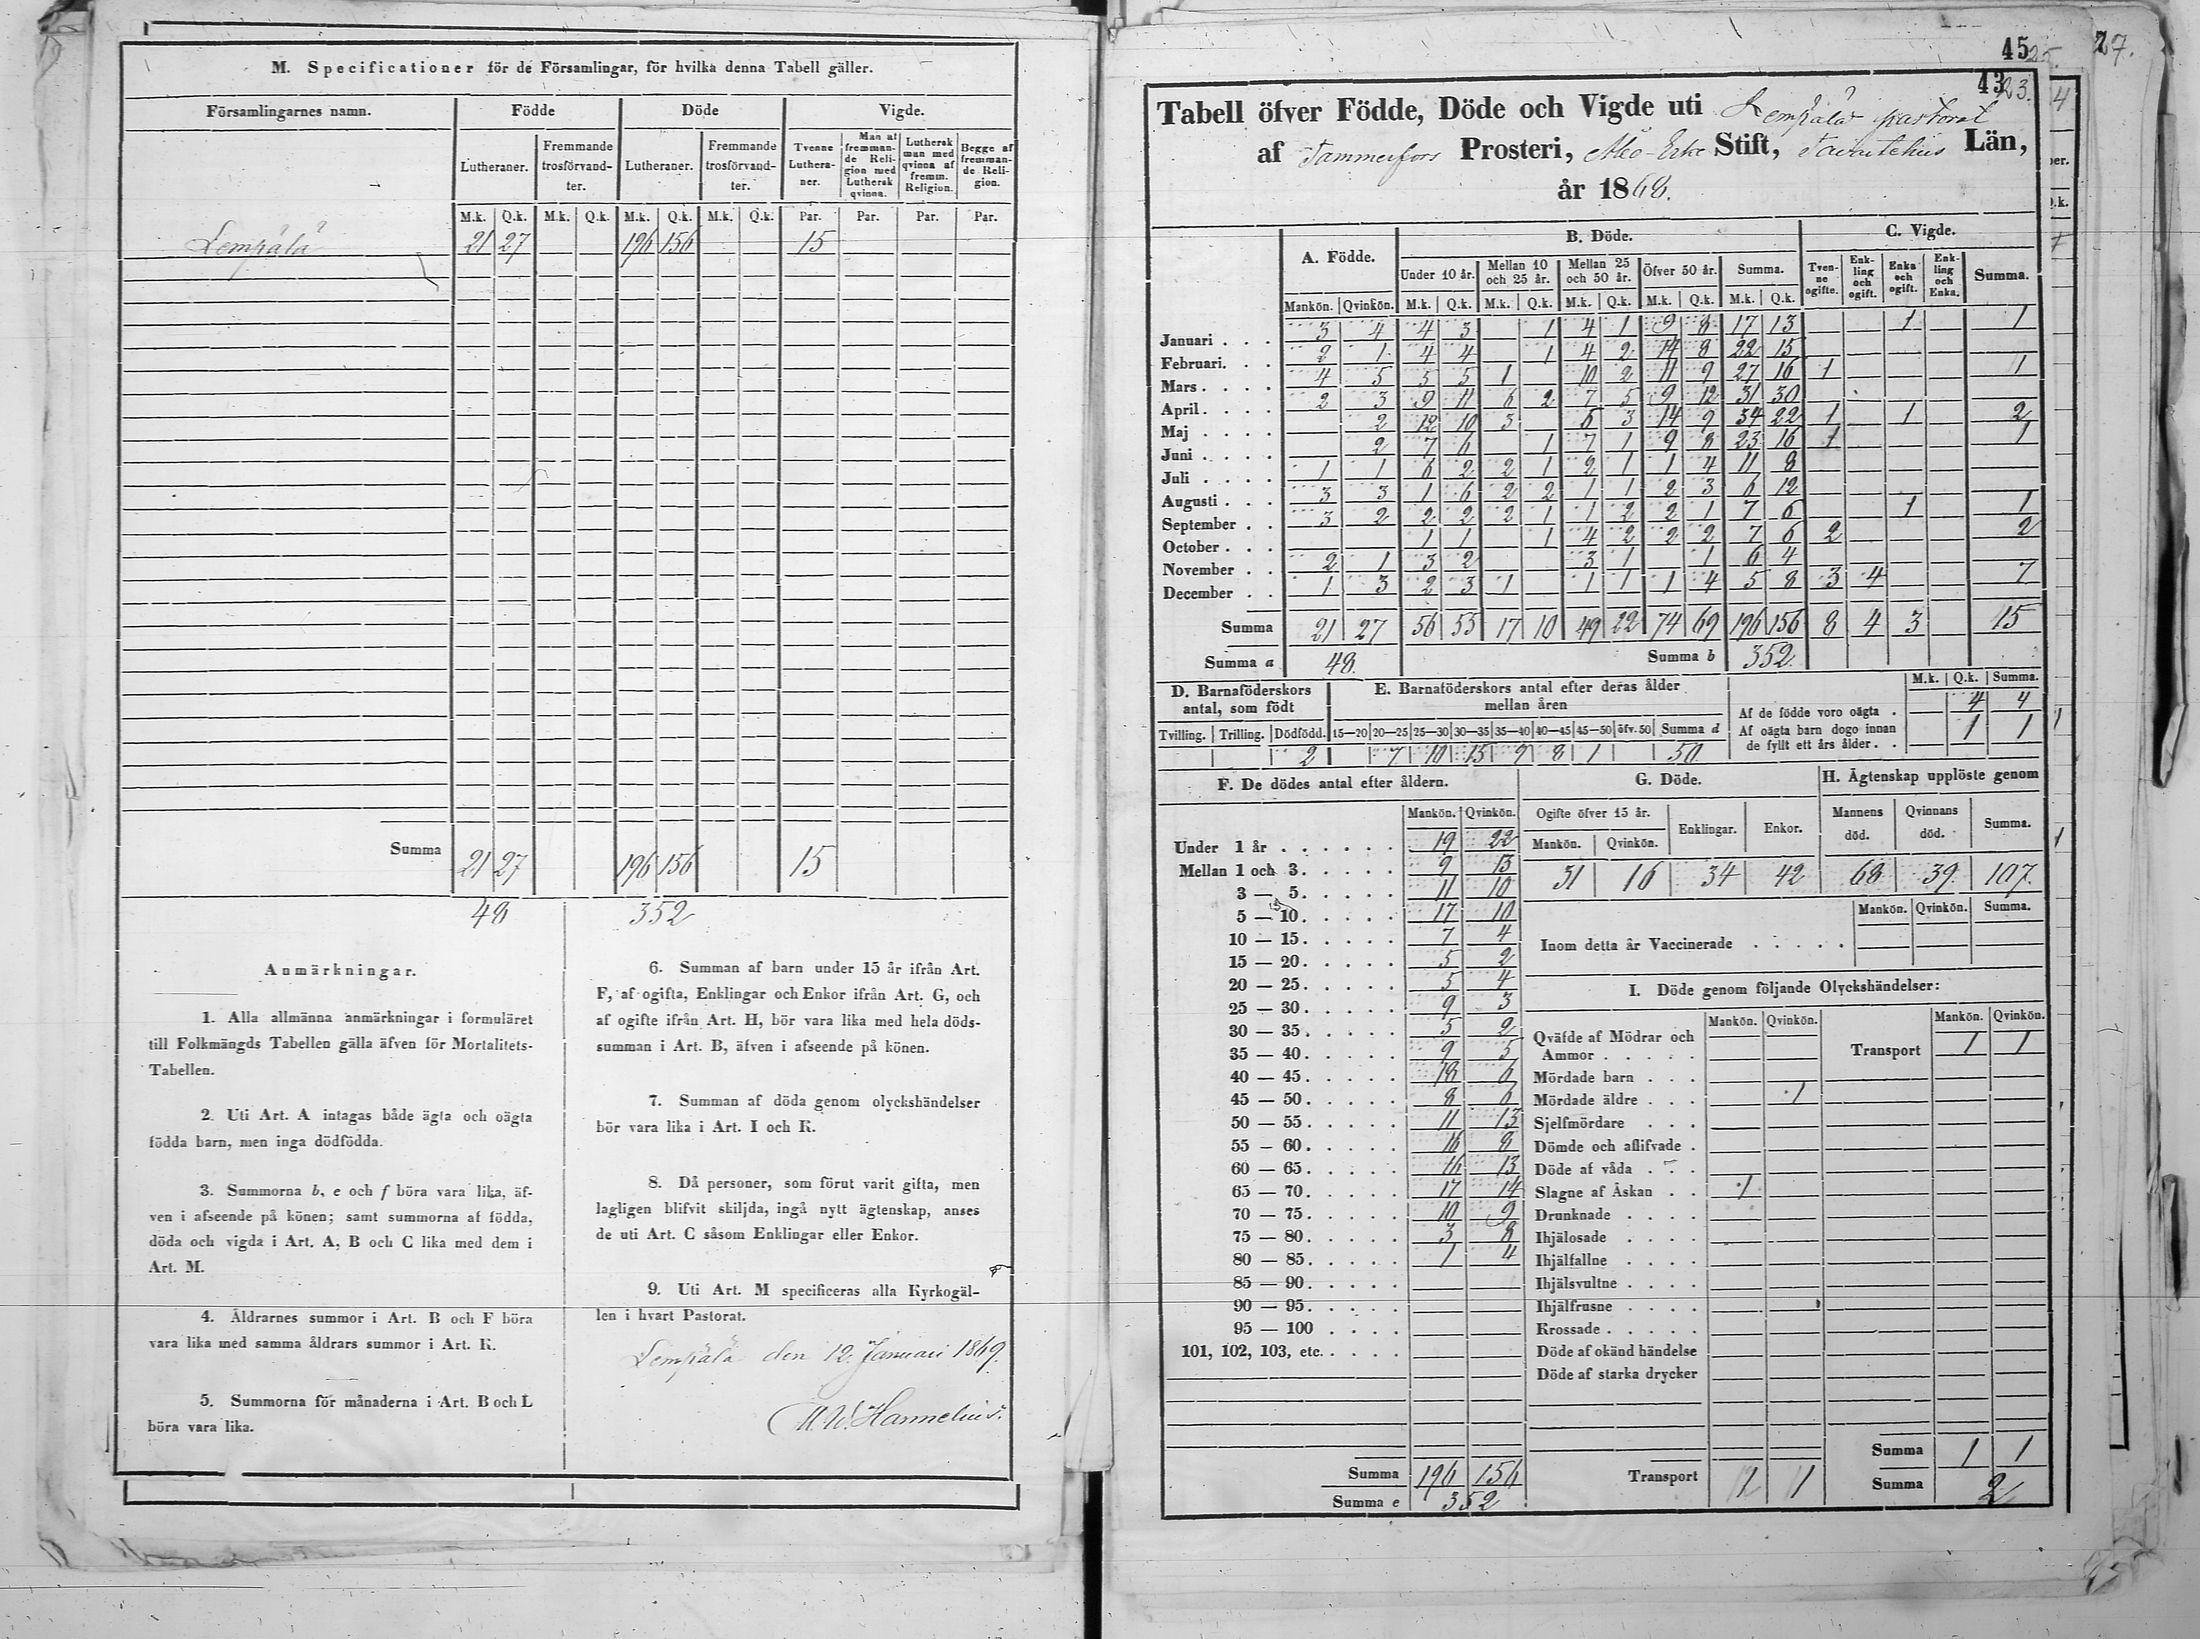 M. Specificationer för de Församlingar, för hvilka denna Tabell gäller.
Församlingarnes namn. Födde Döde Vigde.
Lutheraner. Fremmande trosförvandter. Lutheraner. Fremmande trosförvandter. Tvenne Lutheraner. Man af fremmande Religion med Luthersk qvinna. Luthersk man med qvinna af fremm. Religion. Begge af fremmande Religion.
M.k. Q.k. M.k. Q.k. M.k. Q.k. M.k. Q.k. Par. Par. Par. Par.
Lempälä 21 27 196 156 15
Summa 21 27 196 156 15
48 352
Anmärkningar.
1. Alla allmänna anmärkningar i formuläret
till Folkmängds Tabellen gälla äfven för Mortalitets-
Tabellen.
2. Uti Art. A intagas både ägta och oägta
födda barn, men inga dödfödda.
3. Summorna b, e och f böra vara lika, äf-
ven i afseende på könen; samt summorna af födda,
döda och vigda i Art. A, B och C lika med dem i
Art. M.
4. Åldrarnes summor i Art. B och F böra
vara lika med samma åldrars summor i Art. K.
5. Summorna för månaderna i Art. B och L
böra vara lika.
6. Summan af barn under 15 år ifrån Art.
F, af ogifta, Enklingar och Enkor ifrån Art. G, och
af ogifte ifrån Art. H, bör vara lika med hela döds-
summan i Art. B, äfven i afseende på könen.
7. Summan af döda genom olyckshändelser
bör vara lika i Art. I och K.
8. Då personer, som förut varit gifta, men
lagligen blifvit skiljda, ingå nytt ägtenskap, anses
de uti Art. C såsom Enklingar eller Enkor.
9. Uti Art. M specificeras alla Kyrkogäl-
len i hvart Pastorat.
Lempälä den 12. Januari 1869.
Hannelius.
45 25. 27.
43 23.
Tabell öfver Födde, Döde och Vigde uti Lempälä pastorat
af Tammerfors Prosteri, Åbo Erke Stift, Tavastehus Län,
år 1868.
A. Födde. B. Döde. C. Vigde.
Under 10 år. Mellan 10 och 25 år. Mellan 25 och 50 år. Öfver 50 år. Summa. Tvenne ogifte. Enkling och ogift. Enka och ogift. Enkling och Enka. Summa.
Mankön. Qvinkön. M.k. Q.k. M.k. Q.k. M.k. Q.k. M.k. Q.k. M.k. Q.k.
Januari . . . 3 4 4 3 1 4 1 9 8 17 13 1 1
Februari. . . 2 1 4 4 1 4 2 14 8 22 15
Mars . . . . 4 5 5 5 1 10 2 11 9 27 16 1 1
April . . . . 2 3 9 11 6 2 7 5 9 12 31 30
Maj . . . . 2 12 10 3 6 3 14 9 34 22 1 1 2
Juni . . . . 2 7 6 1 7 1 9 8 23 16 1 1
Juli . . . . 1 1 6 2 2 1 2 1 1 4 11 8
Augusti . . . 3 3 1 6 2 2 1 1 2 3 6 12
September . . 3 2 2 2 2 1 1 2 2 1 7 6 1 1
October . . . 1 1 1 4 2 2 2 7 6 2 2
November . . 2 1 3 2 3 1 1 6 4
December . . 1 3 2 3 1 1 1 1 4 5 8 3 4 7
Summa 21 27 56 55 17 10 49 22 74 69 196 156 8 4 3 15
Summa a 48. Summa b 352.
D. Barnaföderskors antal, som födt
E. Barnaföderskors antal efter deras ålder mellan åren
M.k. Q.k. Summa.
Tvilling. Trilling. Dödfödd. 15—20 20—25 25—30 30—35 35—40 40—45 45—50 öfv. 50 Summa d
2 7 10 15 9 8 1 50
Af de födde voro oägta . 4 4
Af oägta barn dogo innan de fyllt ett års ålder . . 1 1
F. De dödes antal efter åldern.
Mankön. Qvinkön.
Under 1 år . . . . . . 19 22
Mellan 1 och 3. . . . . 9 13
3 — 5. . . . . 11 10
5 — 10. . . . . 17 10
10 — 15. . . . . 7 4
15 — 20. . . . . 5 2
20 — 25. . . . . 5 4
25 — 30. . . . . 9 3
30 — 35. . . . . 5 2
35 — 40. . . . . 9 5
40 — 45. . . . . 18 6
45 — 50. . . . . 8 6
50 — 55. . . . . 11 13
55 — 60. . . . . 16 8
60 — 65. . . . . 16 13
65 — 70. . . . . 17 14
70 — 75. . . . . 10 9
75 — 80. . . . . 3 8
80 — 85. . . . . 1 4
85 — 90. . . . .
90 — 95. . . . .
95 — 100 . . . .
101, 102, 103, etc. . . . .
Summa 196 156
Summa e 352
G. Döde.
Ogifte öfver 15 år. Enklingar. Enkor.
Mankön. Qvinkön.
31 16 34 42
H. Ägtenskap upplöste genom
Mannens död. Qvinnans död. Summa.
68 39 107.
Mankön. Qvinkön. Summa.
Inom detta år Vaccinerade . . . . .
I. Döde genom följande Olyckshändelser:
Mankön. Qvinkön. Mankön. Qvinkön.
Qväfde af Mödrar och
Ammor . . . . . Transport 1 1
Mördade barn . . .
Mördade äldre . . . 1
Sjelfmördare . . .
Dömde och aflifvade .
Döde af våda . . .
Slagne af Åskan . . 1
Drunknade . . . .
Ihjälosade . . . .
Ihjälfallne . . . .
Ihjälsvultne . . . .
Ihjälfrusne . . . .
Krossade . . . . .
Döde af okänd händelse
Döde af starka drycker
Summa 1 1
Transport 1 1
Summa 2